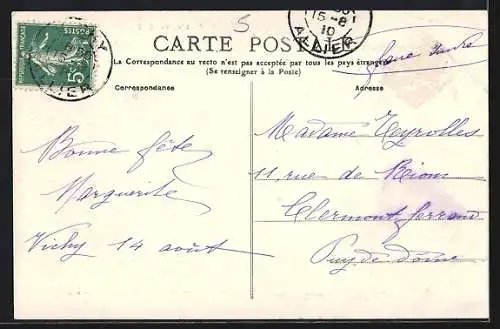 5
CARTE POSTALE
La Correspondance au recto n'est pas acceptée par tous les pays étrangers
(Se renseigner à la Poste)
Correspondance
Adresse
REPUBLIQUE FRANÇAISE
POSTES
5
ALLIER
15-8
10
ALLIER
Bonne fête
Marguerite
Vichy 14 août
Madame Teyrolles
11, rue de Riom
Clermont ferrand
Puy de dôme